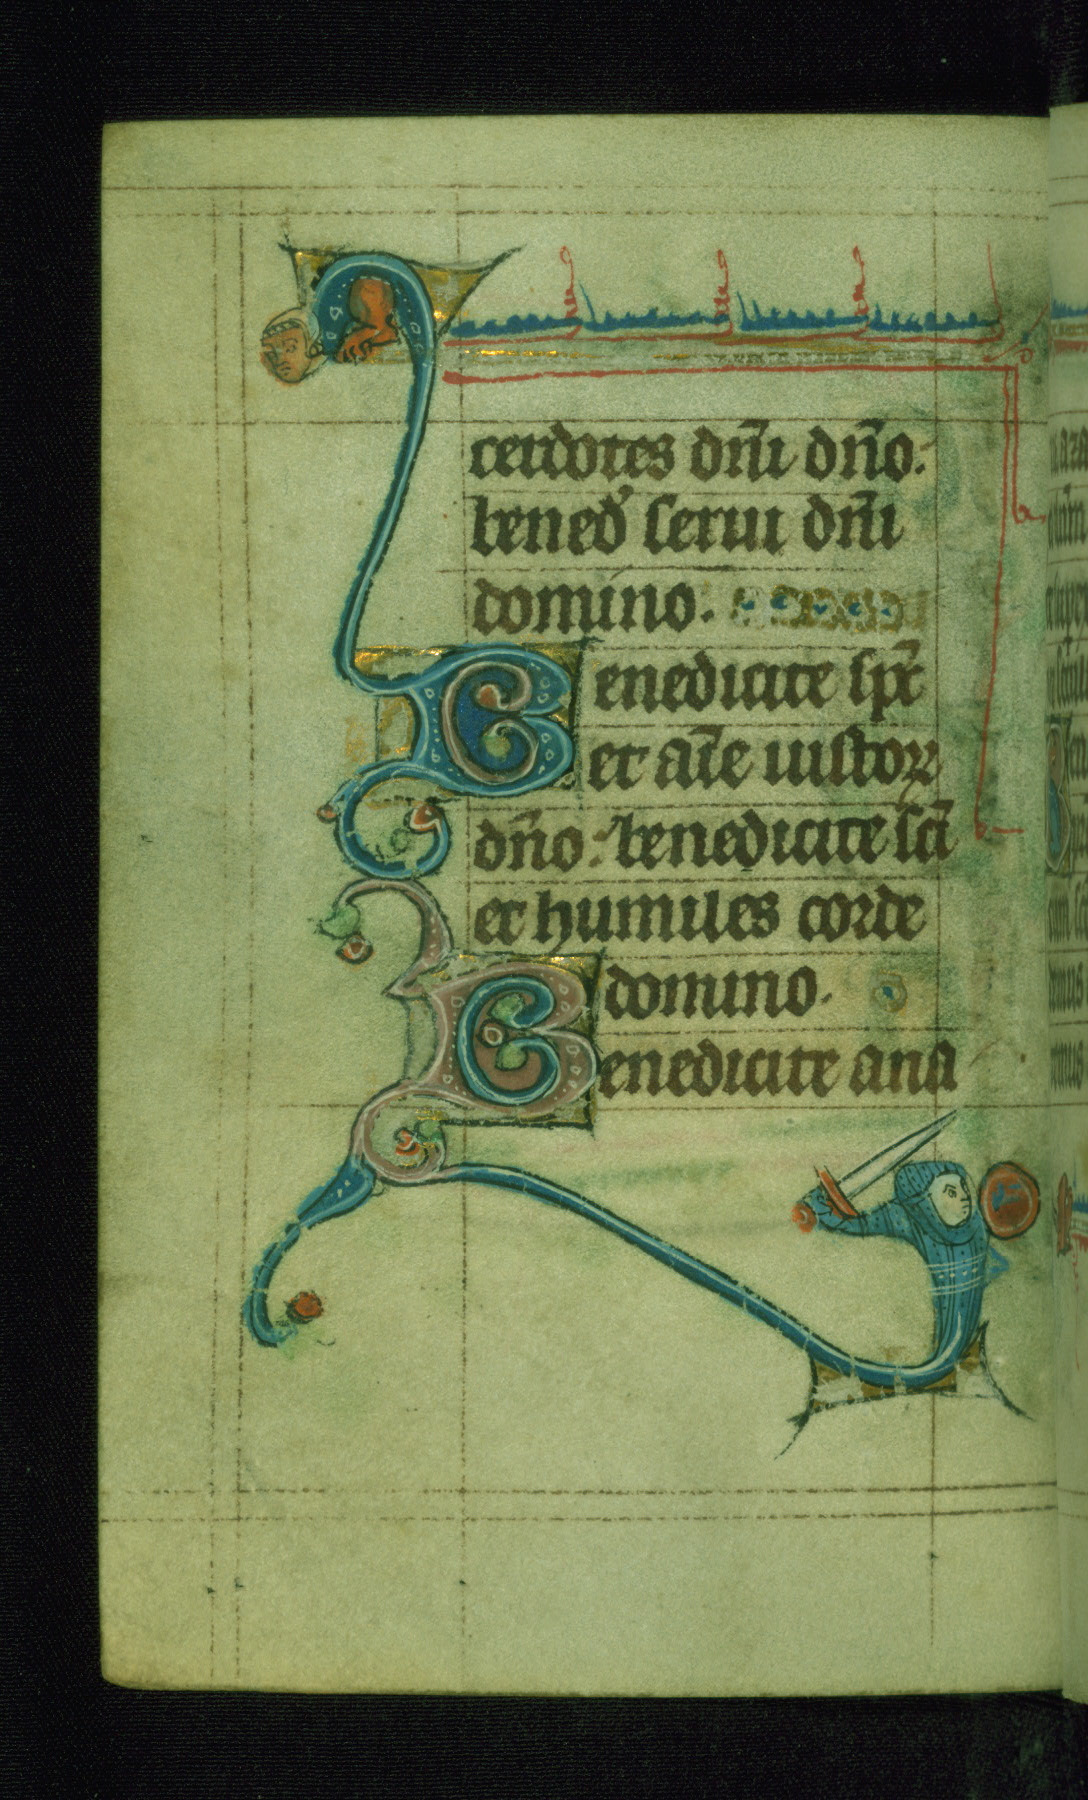 cerdotes dn̄i dn̄o:
bened̾ serui dn̄i
domino.
Benedicite sp̄c
et aīe iustoꝝ
dn̄o: benedicite sc̄i
et humiles corde
domino.
Benedicite ana